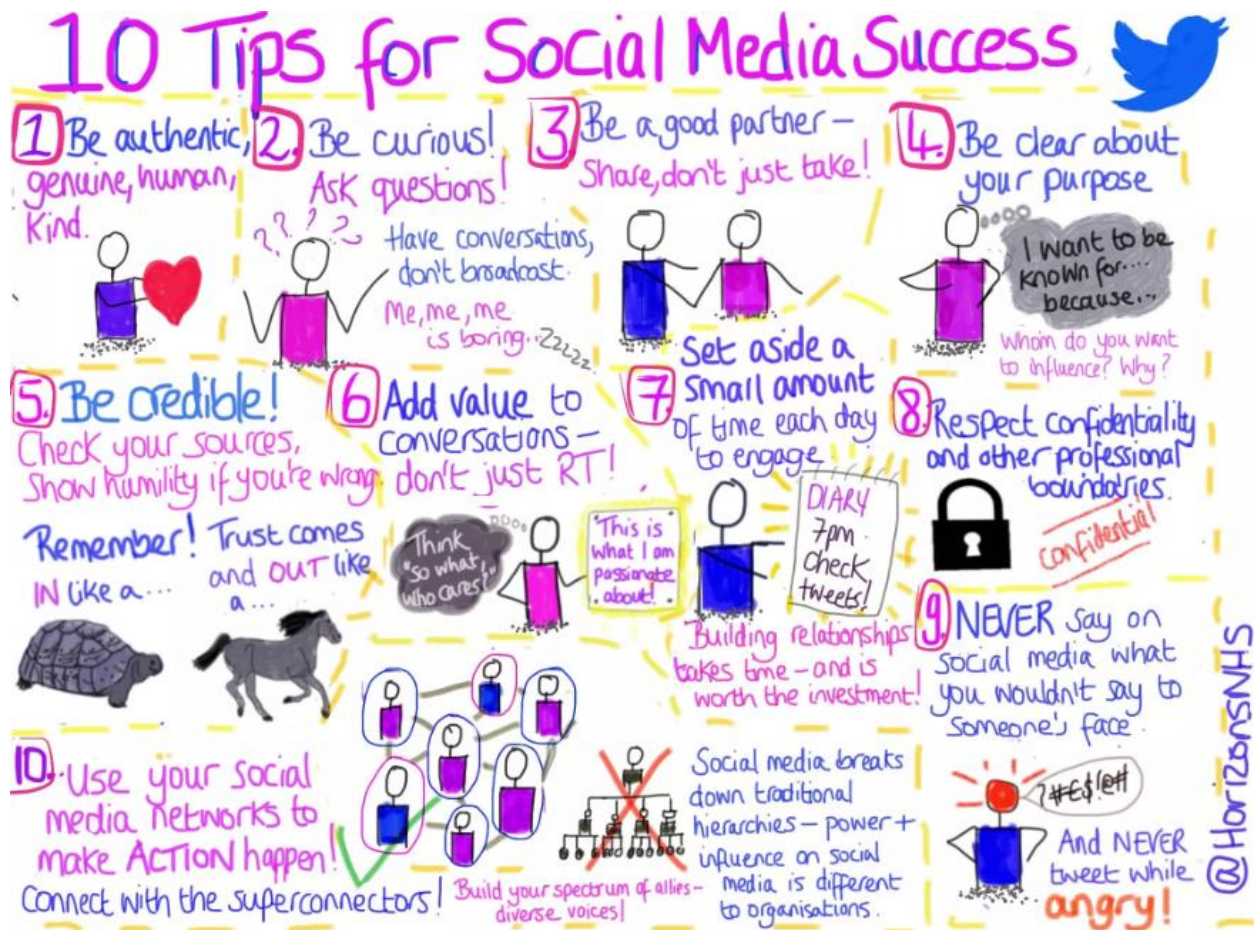 10 Tips for Social Media Success
1 Be authentic,
genuine, human,
kind.
2. Be curious!
Ask questions!
? ? ? ?
Have conversations,
don't broadcast.
Me, me, me
is boring...zzzzz
3 Be a good partner –
Share, don't just take!
4. Be clear about
your purpose
I want to be
known for....
because...
Whom do you want
to influence? Why?
5. Be credible!
Check your sources,
Show humility if you're wrong.
Remember! Trust comes
IN like a...
and OUT like
a...
6 Add value to
conversations –
don't just RT!
Think
"so what,
who cares?"
This is
what I am
passionate
about!
7. Set aside a
small amount
of time each day
to engage.
DIARY
7pm
Check
tweets!
Building relationships
takes time – and is
worth the investment!
8. Respect confidentiality
and other professional
boundaries.
confidential
9. NEVER say on
social media what
you wouldn't say to
someone's face.
?#€$!@#
And NEVER
tweet while
angry!
10. Use your social
media networks to
make ACTION happen!
Connect with the superconnectors!
Build your spectrum of allies –
diverse voices!
Social media breaks
down traditional
hierarchies – power +
influence on social
media is different
to organisations.
@HorizonsNHS